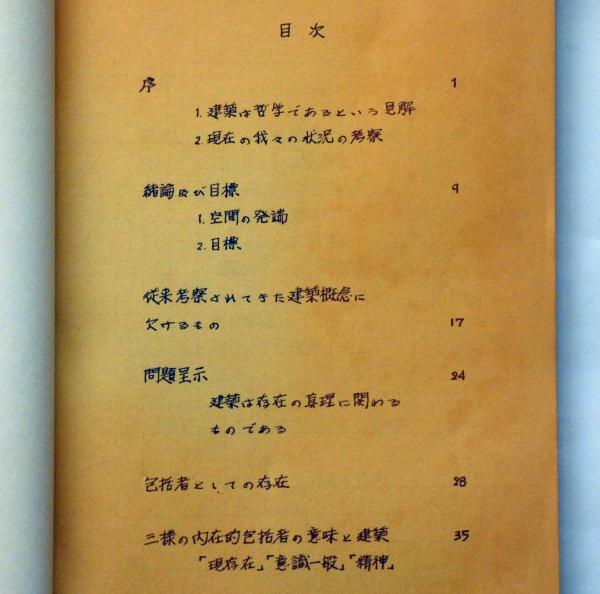 目次
序 1
1. 建築は哲学であるという見解
2. 現在の我々の状況の考察
緒論及び目標 9
1. 空間の発端
2. 目標
従来考察されてきた建築概念に
欠けるもの 17
問題呈示 24
建築は存在の真理に関わる
ものである
包括者としての存在 28
三様の内在的包括者の意味と建築 35
「現存在」「意識一般」「精神」